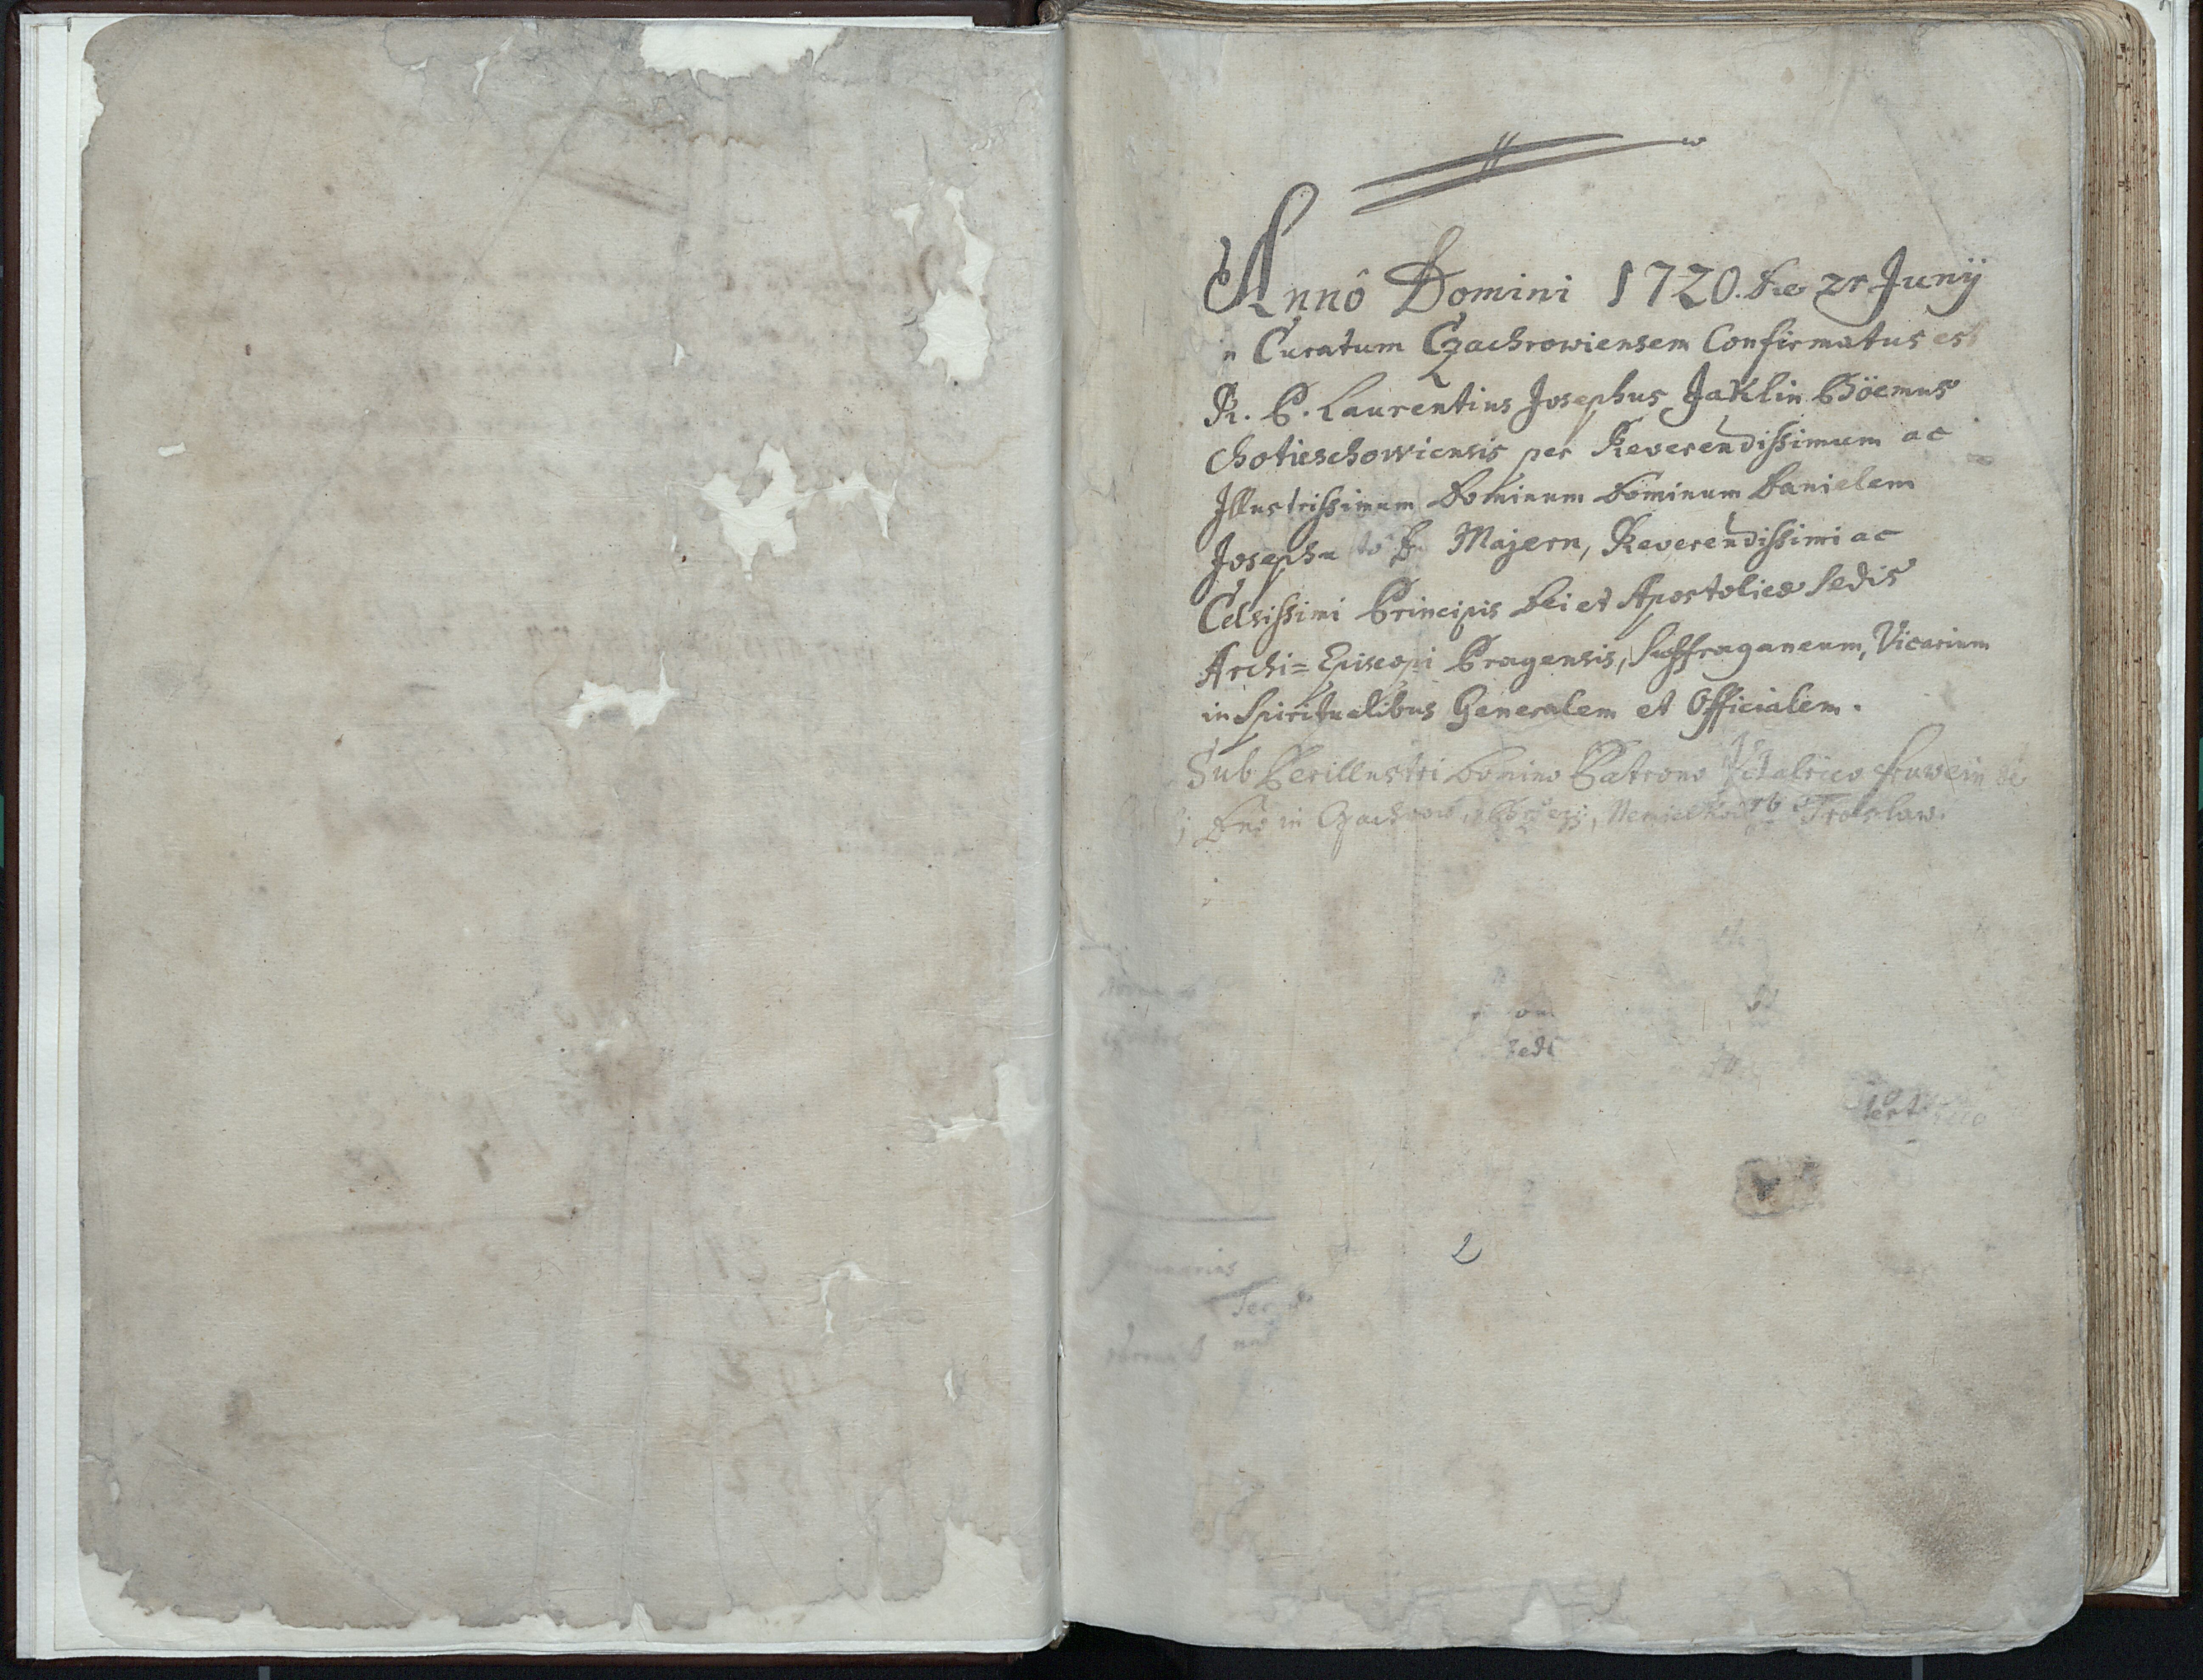 Annô Domini 1720. Die 21 Junÿ
in Curatum Czachrowiensem Confirmatus est
R. P. Laurentius Josephus Jaklin Böemus
Chotieschowiensis per Reverendissimum ac
Illustrissimum Dominum Dominum Danielem
Josephu Majern, Reverendissimi ac
Celsissimi Principis Dei et Apostolicæ Sedis
Archi= Episcopi Pragensis, Suffraganeum, Vicarium
in Spiritualibus Generalem et Officialem.
Sub Perillustri Domino Patrono
Dno in Czachrow Troslaw.
2